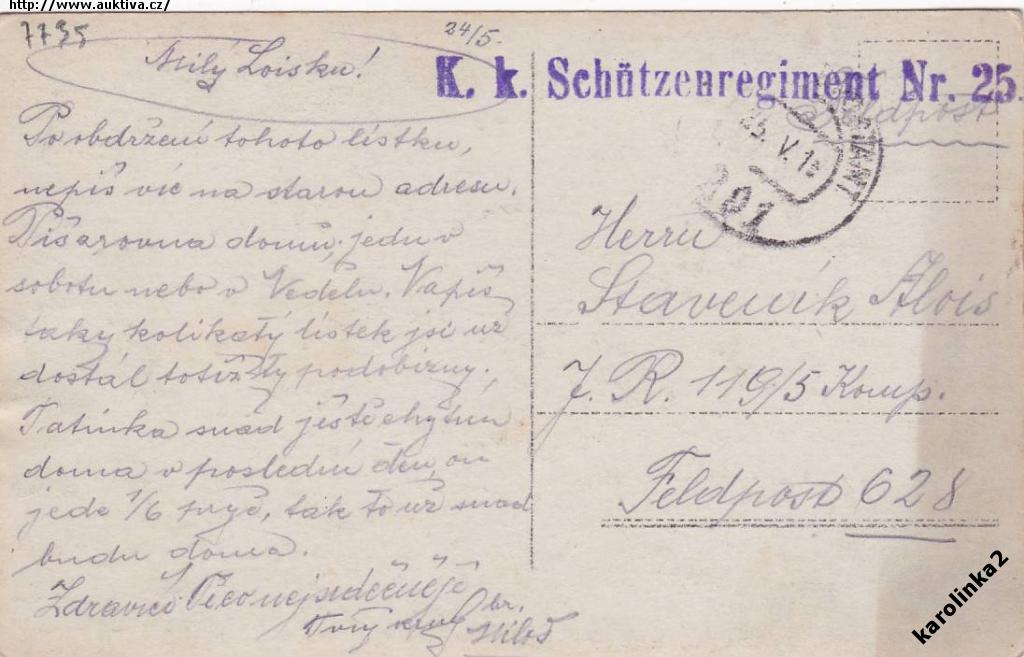 http://www.auktiva.cz/
7735
24/5.
Milý Loisku!
Po obdržení tohoto lístku,
nepiš víc na starou adresu.
Píšu rovnou domů, jedu v
sobotu nebo v Neděli. Napiš
taky kolikatý lístek jsi už
dostal totiž ty podobizny.
Tatínka snad ještě chytím
doma v poslední den, on
jede 1/6 pryč, tak to už snad
budu doma.
Zdravíc Tě co nejsrdečněji
Tvůj br.
Miloš
K. k. Schützenregiment Nr. 25.
Feldpost
25. V. 1
201
Herrn
Staveník Alois
J. R. 119/5 Komp.
Feldpost 628
karolinka2